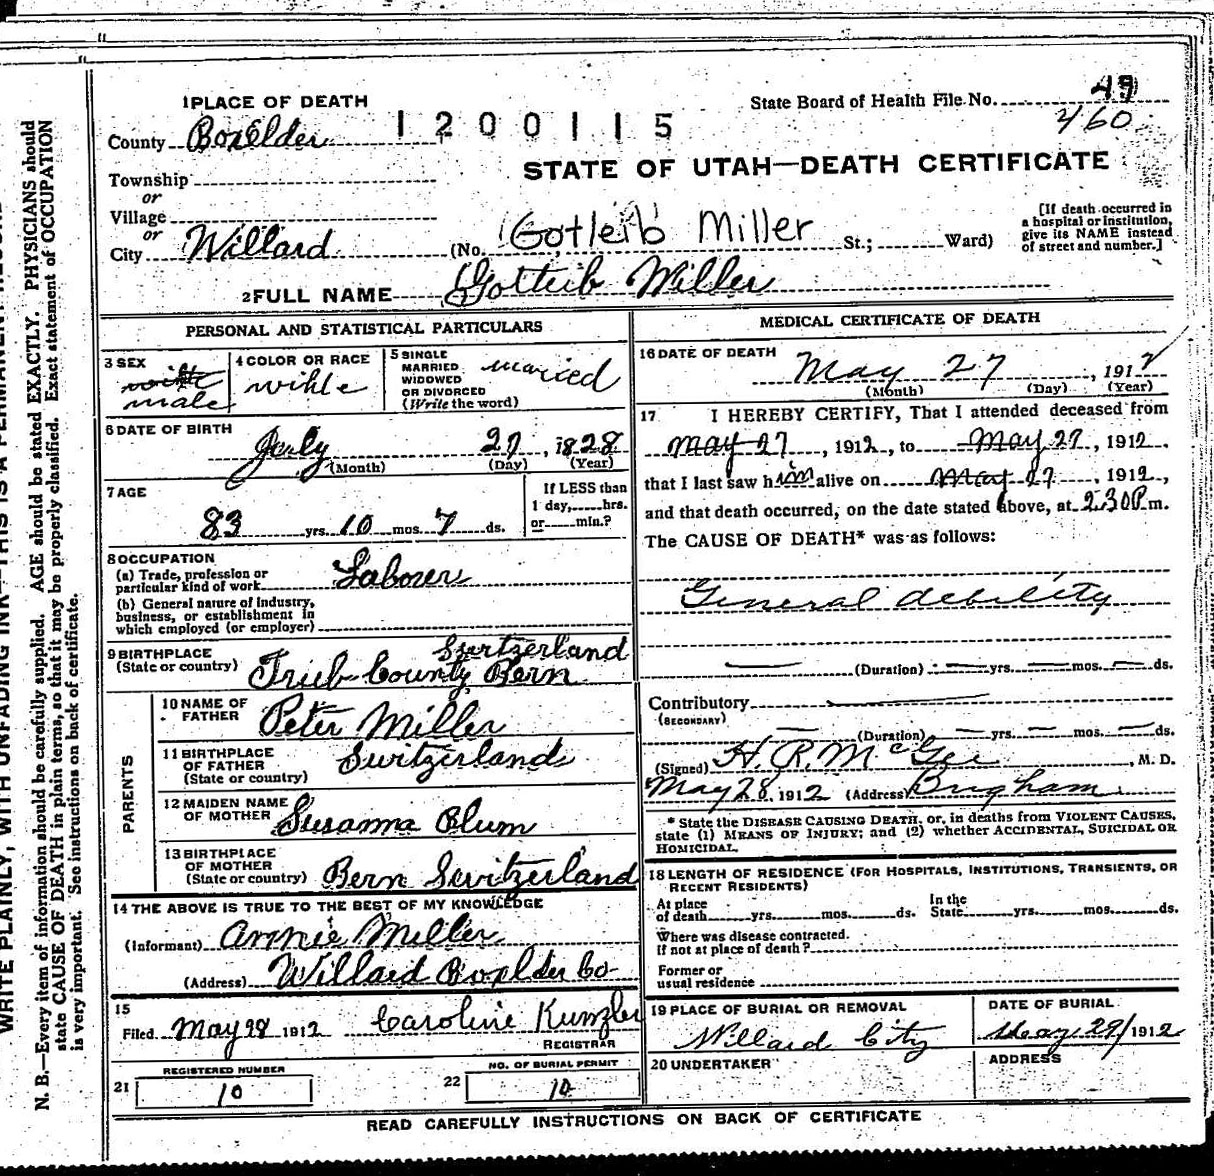 1 PLACE OF DEATH
County Boxelder
1200115
State Board of Health File No. 49
460
STATE OF UTAH—DEATH CERTIFICATE
Township
or
Village
or
City Willard (No. Gotleib Miller St.; Ward)
[If death occurred in
a hospital or institution,
give its NAME instead
of street and number.]
2 FULL NAME Gottleib Miller
PERSONAL AND STATISTICAL PARTICULARS
3 SEX
male
4 COLOR OR RACE
wihte
5 SINGLE
MARRIED
WIDOWED
OR DIVORCED
(Write the word)
married
6 DATE OF BIRTH
July 27, 1828
(Month) (Day) (Year)
7 AGE
83 yrs. 10 mos. 7 ds.
If LESS than
1 day, hrs.
or min.?
8 OCCUPATION
(a) Trade, profession or
particular kind of work Laborer
(b) General nature of industry,
business, or establishment in
which employed (or employer)
9 BIRTHPLACE
(State or country)
Switzerland
Trieb County Bern
PARENTS
10 NAME OF
FATHER
Peter Miller
11 BIRTHPLACE
OF FATHER
(State or country)
Switzerland
12 MAIDEN NAME
OF MOTHER
Susanna Blum
13 BIRTHPLACE
OF MOTHER
(State or country)
Bern Switzerland
14 THE ABOVE IS TRUE TO THE BEST OF MY KNOWLEDGE
(Informant) Annie Miller
(Address) Willard Boxelder Co
15
Filed May 28 1912 Caroline Kunzler
REGISTRAR
REGISTERED NUMBER
21 10
NO. OF BURIAL PERMIT
22 10
MEDICAL CERTIFICATE OF DEATH
16 DATE OF DEATH
May 27, 1912
(Month) (Day) (Year)
17 I HEREBY CERTIFY, That I attended deceased from
May 27, 1912, to May 27, 1912,
that I last saw him alive on May 27, 1912,
and that death occurred, on the date stated above, at 2.30 P m.
The CAUSE OF DEATH* was as follows:
General debility
(Duration) yrs. mos. ds.
Contributory
(SECONDARY)
(Duration) yrs. mos. ds.
(Signed) H. R. McGee, M. D.
May 28, 1912 (Address) Brigham
* State the DISEASE CAUSING DEATH, or, in deaths from VIOLENT CAUSES,
state (1) MEANS OF INJURY; and (2) whether ACCIDENTAL, SUICIDAL OR
HOMICIDAL.
18 LENGTH OF RESIDENCE (FOR HOSPITALS, INSTITUTIONS, TRANSIENTS, OR
RECENT RESIDENTS)
At place
of death yrs. mos. ds.
In the
State yrs. mos. ds.
Where was disease contracted.
If not at place of death?
Former or
usual residence
19 PLACE OF BURIAL OR REMOVAL
Willard City
DATE OF BURIAL
May 29/1912
20 UNDERTAKER
ADDRESS
READ CAREFULLY INSTRUCTIONS ON BACK OF CERTIFICATE
N. B.—Every item of information should be carefully supplied. AGE should be stated EXACTLY. PHYSICIANS should
state CAUSE OF DEATH in plain terms, so that it may be properly classified. Exact statement of OCCUPATION
is very important. See instructions on back of certificate.